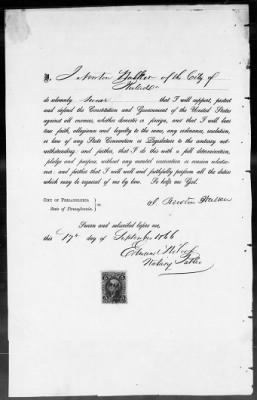 I, J Newton Walker of the City of
Philada
do solemnly Swear that I will support, protect
and defend the Constitution and Government of the United States
against all enemies, whether domestic or foreign, and that I will bear
true faith, allegiance and loyalty to the same, any ordinance, resolution,
or law of any State Convention or Legislature to the contrary not-
withstanding; and further, that I do this with a full determination,
pledge and purpose, without any mental reservation or evasion whatso-
ever; and further that I will well and faithfully perform all the duties
which may be required of me by law. So help me God.
CITY OF PHILADELPHIA
State of Pennsylvania.
ss
J. Newton Walker
Sworn and subscribed before me,
this 17th day of September 1866
Edmund
Notary Public